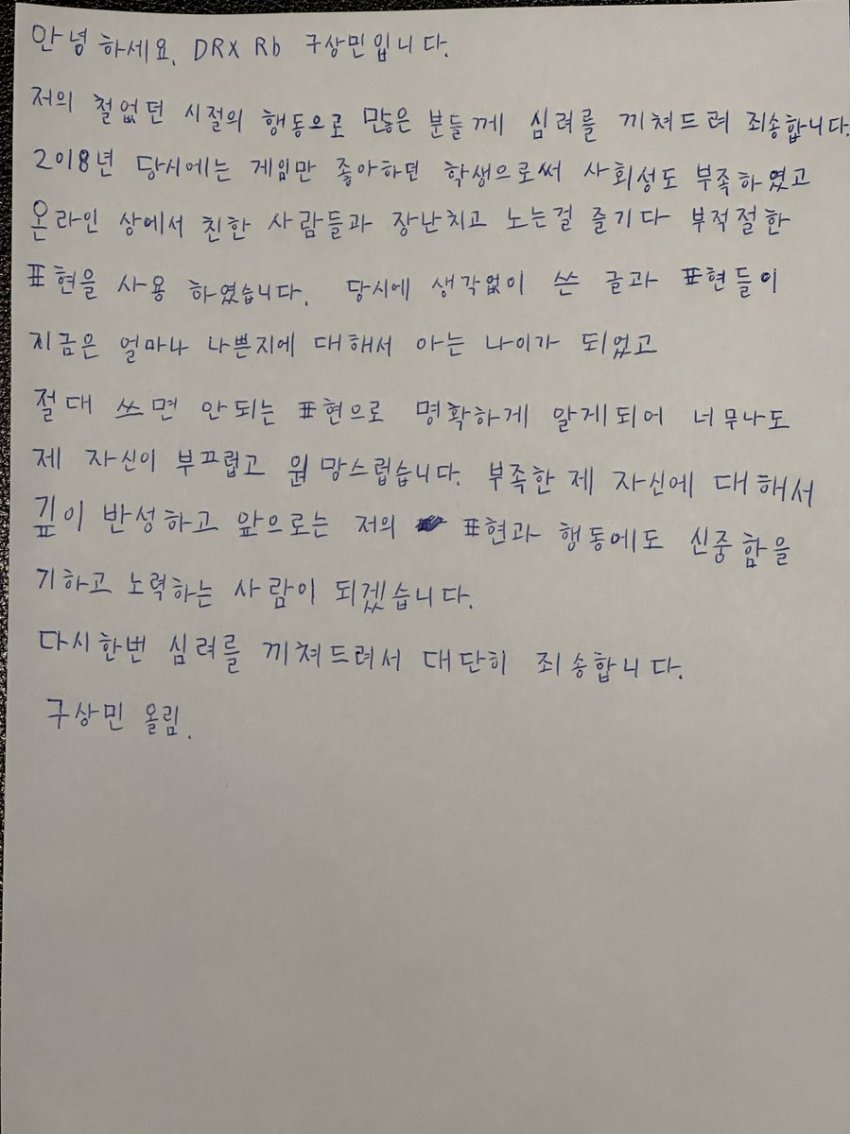 안녕하세요. DRX Rb 구상민입니다.
저의 철없던 시절의 행동으로 많은 분들께 심려를 끼쳐드려 죄송합니다.
2018년 당시에는 게임만 좋아하던 학생으로써 사회성도 부족하였고
온라인 상에서 친한 사람들과 장난치고 노는걸 즐기다 부적절한
표현을 사용 하였습니다. 당시에 생각없이 쓴 글과 표현들이
지금은 얼마나 나쁜지에 대해서 아는 나이가 되었고
절대 쓰면 안되는 표현으로 명확하게 알게되어 너무나도
제 자신이 부끄럽고 원망스럽습니다. 부족한 제 자신에 대해서
깊이 반성하고 앞으로는 저의 표현과 행동에도 신중함을
기하고 노력하는 사람이 되겠습니다.
다시한번 심려를 끼쳐드려서 대단히 죄송합니다.
구상민 올림.